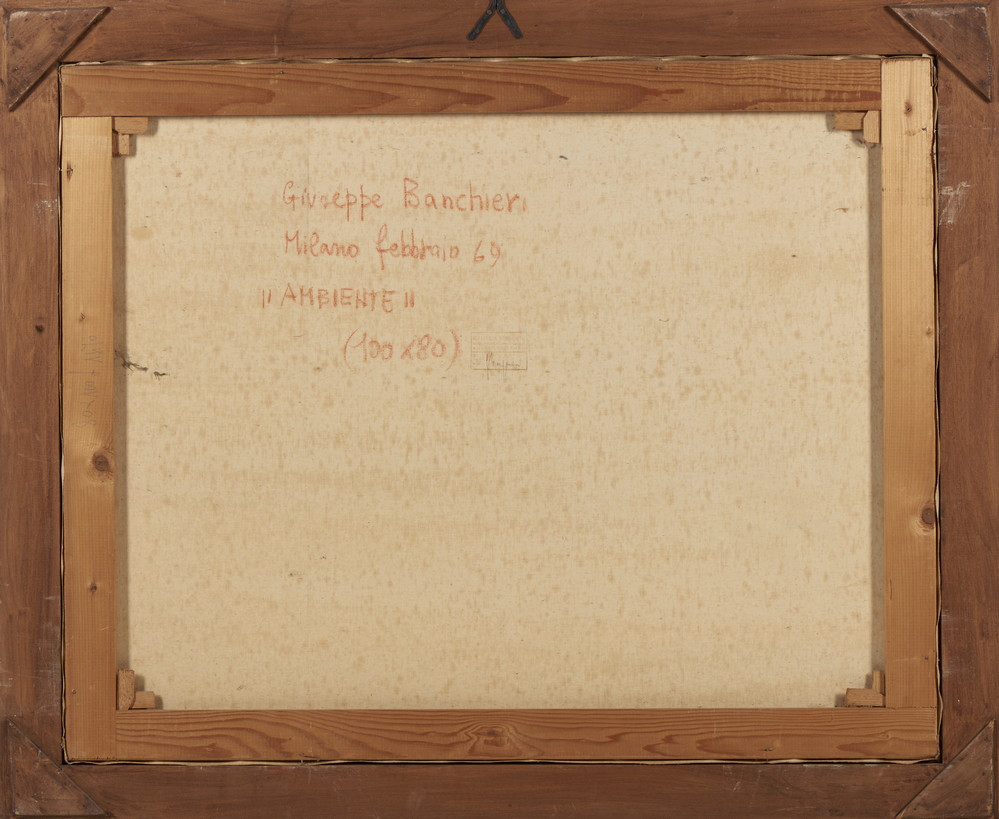 Giuseppe Banchieri
Milano febbraio 69
"AMBIENTE"
(100x80)